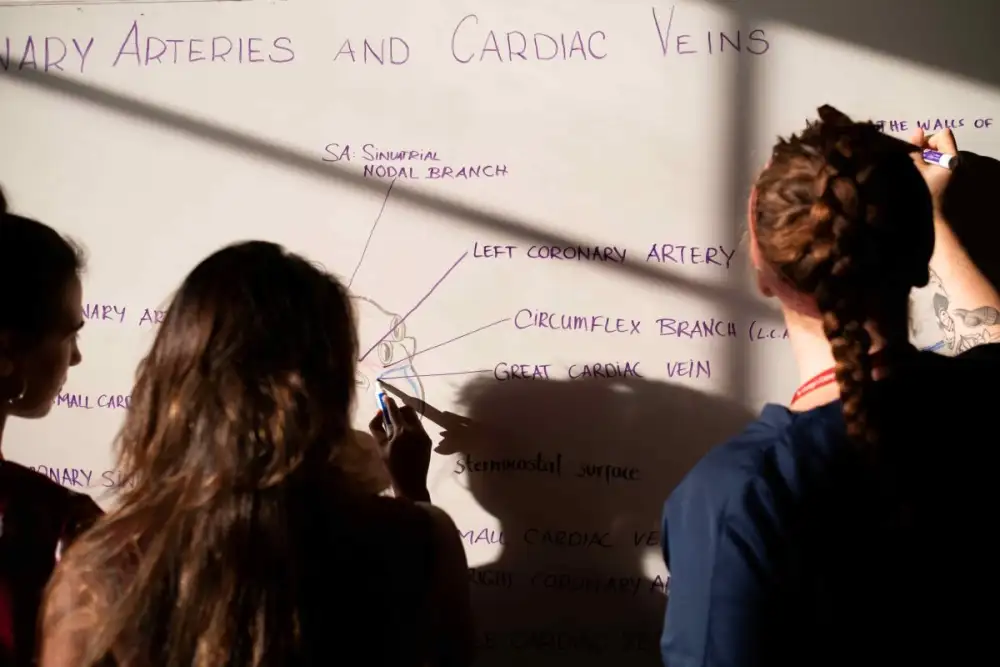 NARY ARTERIES AND CARDIAC VEINS
THE WALLS OF
SA: SINUATRIAL
NODAL BRANCH
LEFT CORONARY ARTERY
NARY AR
CIRCUMFLEX BRANCH (L.C.
GREAT CARDIAC VEIN
MALL CARD
sternocostal surface
ONARY SIN
MALL CARDIAC VE
RIGHT CORONARY A
LE CARDIAC VE